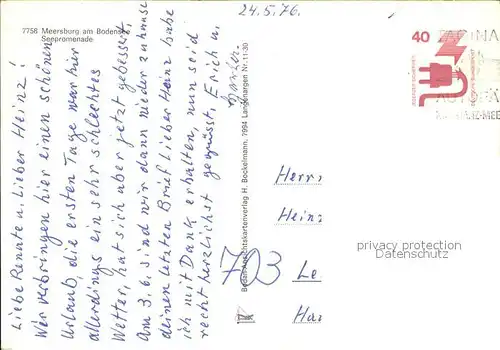 7758 Meersburg am Bodensee
Seepromenade
24.5.76.
Liebe Renate u. Lieber Heinz!
Wir verbringen hier einen schönen
Urlaub, die ersten Tage war hier
allerdings ein sehr schlechtes
Wetter, hat sich aber jetzt gebessert.
Am 3.6. sind wir dann wieder zuhause
deinen letzten Brief lieber Heinz habe
ich mit Dank erhalten, nun seid
recht herzlichst gegrüsst, Erich u.
Bodensee-Ansichtskartenverlag H. Bockelmann, 7994 Langenargen Nr. 11-30
40
DEUTSCHE BUNDESPOST
Herrn
Heinz
703
Le
Ha
privacy protection
Datenschutz